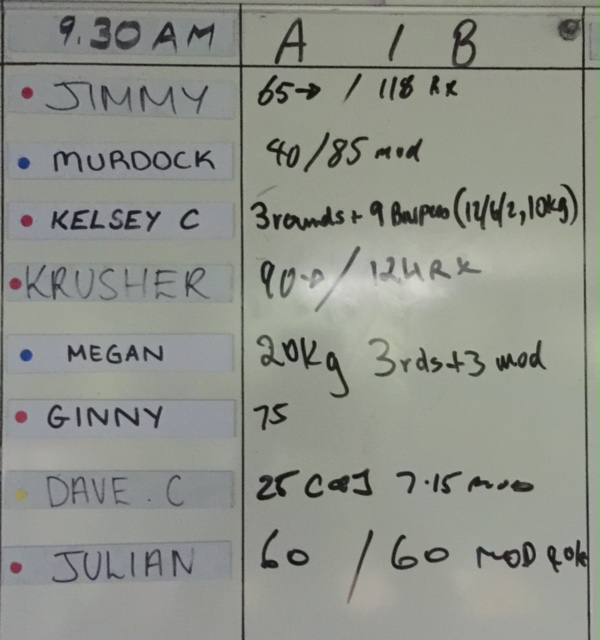 9.30 AM A / B
JIMMY 65→ / 118 Rx
MURDOCK 40/85 mod
KELSEY C 3rounds + 9 Burpees (12/6/2, 10kg)
KRUSHER 90→ / 124 RX
MEGAN 20kg 3rds+3 mod
GINNY 75
DAVE . C 25 C&J 7.15 mod
JULIAN 60 / 60 MOD